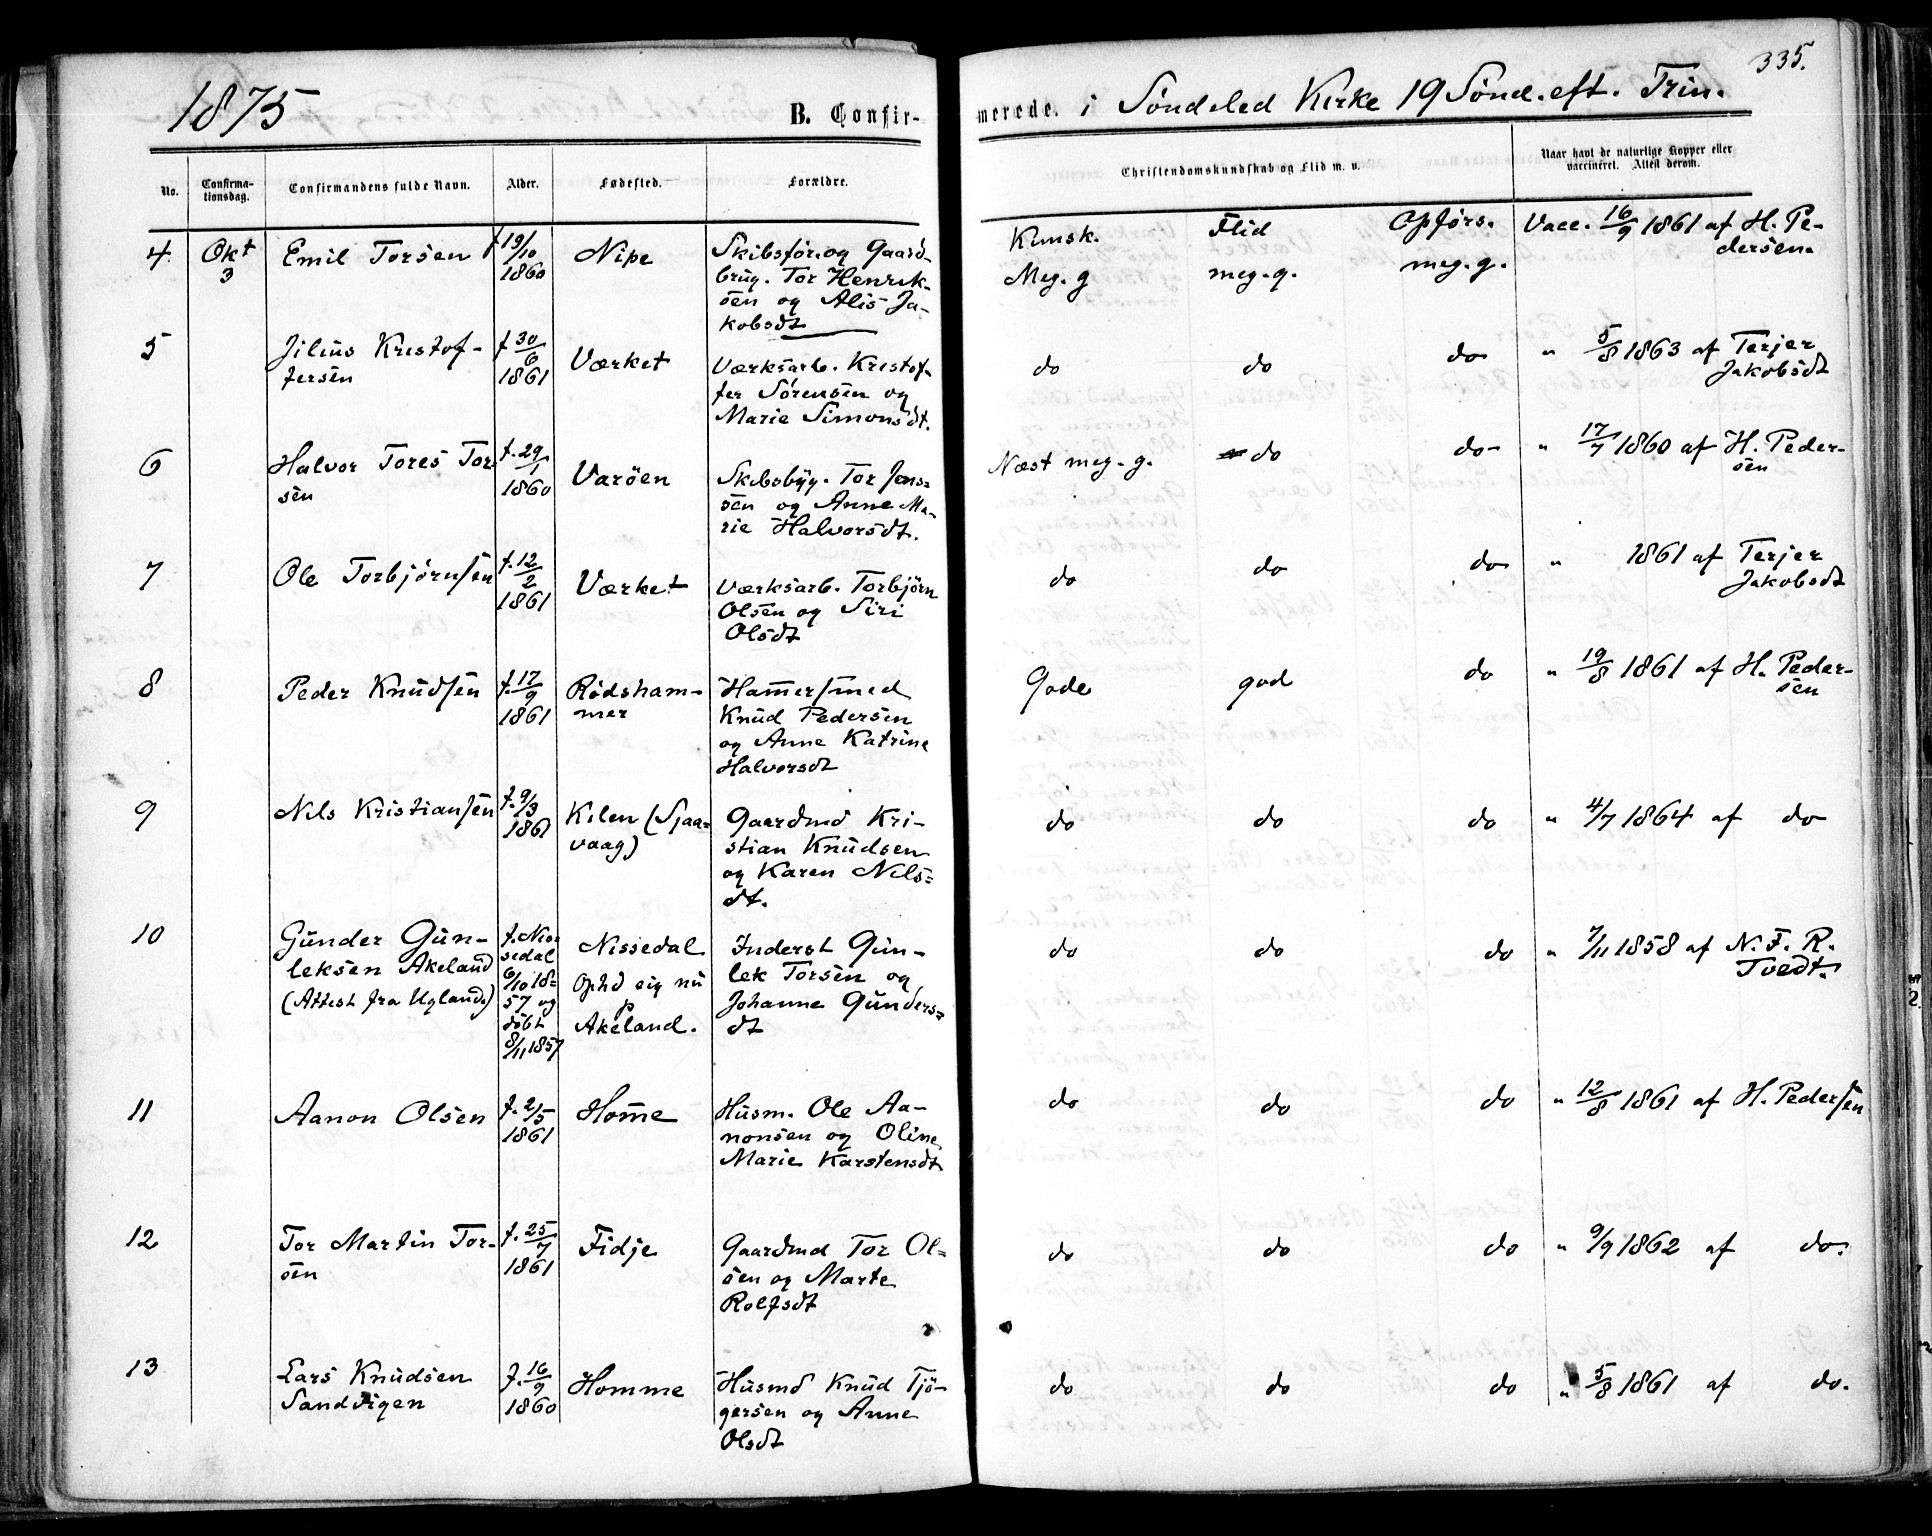 335.
1875 B. Confir- merede. i Söndeled Kirke 19 Sönd. eft. Trin.
No. Confirma-tionsdag. Confirmandens fulde Navn. Alder. Fødested. Forældre. Christendomskundskab og Flid m. v. Naar havt de naturlige Kopper eller vaccineret. Attest derom.
Kunsk. Flid Opførs.
4 Okt 3 Emil Torsen f 19/10 1860 Nipe Skibsför. og Gaard-
brug. Tor Henrik-
sen og Alis Ja-
kobsdt
Meg. g meg. g. meg. g. Vacc. 16/9 1861 af H. Pe-
dersen.
5 Jilius Kristof-
fersen
f 30/6 1861 Værket Værksarb. Kristof-
fer Sörensen og
Marie Simonsdt.
do do do " 5/8 1863 af Terjer
Jakobsdt
6 Halvor Tores Tor-
sen
f. 29/1 1860 Varöen Skibsbyg. Tor Jens=
sen og Anne Ma-
rie Halvorsdt.
Næst meg. g. do do " 17/7 1860 af H. Peder-
sen
7 Ole Torbjörnsen f. 12/2 1861 Værket Værksarb. Torbjörn
Olsen og Siri
Olsdt
do do do " 1861 af Terjer
Jakobsdt
8 Peder Knudsen f. 17/9 1861 Rödsham-
mer
Hamersmed
Knud Pedersen
og Anne Katrine
Halvorsdt
Gode god do " 19/8 1861 af H. Peder-
sen
9 Nils Kristiansen f. 9/3 1861 Kilen (Sjaa=
vaag)
Gaardmd Kri-
stian Knudsen
og Karen Nils=
dt.
do do do " 4/7 1864 af do
10 Gunder Gun-
leksen Akeland
(Attest fra Ugland.)
f. Nis=
sedal
6/10 18=
57 og
döbt
8/11 1857
Nissedal
Ophd sig nu
p
Akeland.
Inderst Gun-
lek Torsen og
Johanne Gunders=
dt
do do do " 7/11 1858 af N. F. R.
Tvedt.
11 Aanon Olsen f. 2/5 1861 Home Husm. Ole Aa-
nonsen og Oline
Marie Karstensdt
do do do " 12/8 1861 af H. Pedersen
12 Tor Martin Tor-
sen
f. 25/7 1861 Fidje Gaardmd Tor Ol=
sen og Marte
Rolfsdt
do do do " 9/9 1862 af do.
13 Lars Knudsen
Sandvigen
f. 16/9 1860 Homme Husmd Knud Tjö-
gersen og Anne
Olsdt
do do do " 5/8 1861 af do.